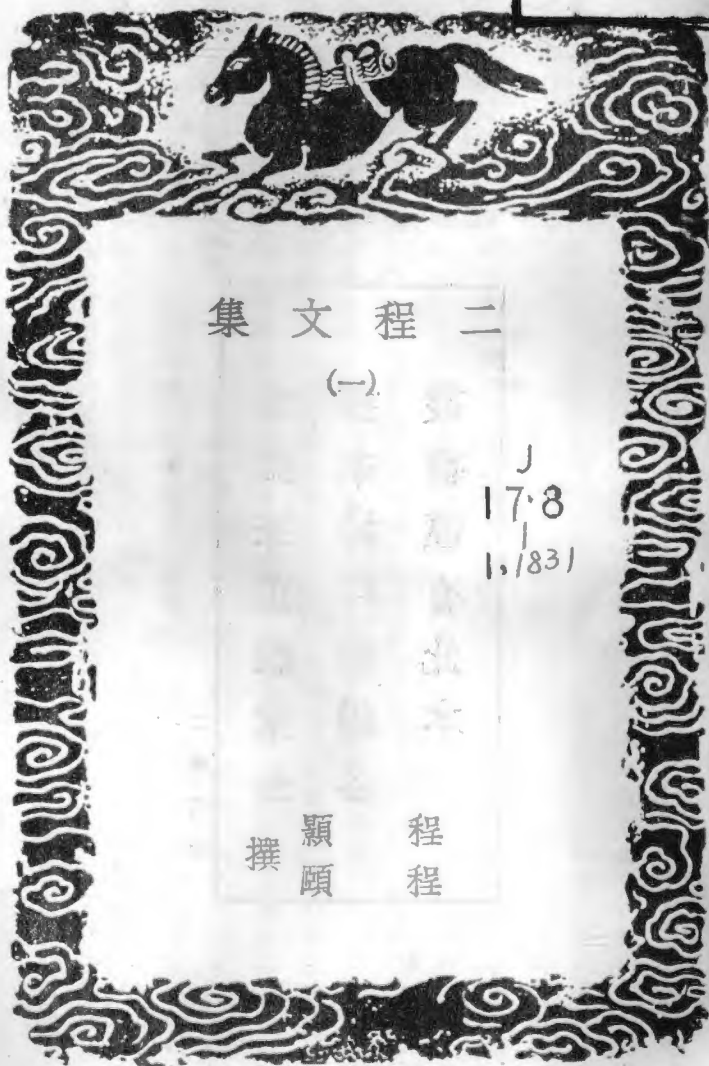 二程文集
(一)
J
17.8
1
1,1831
程顥
程頤
撰